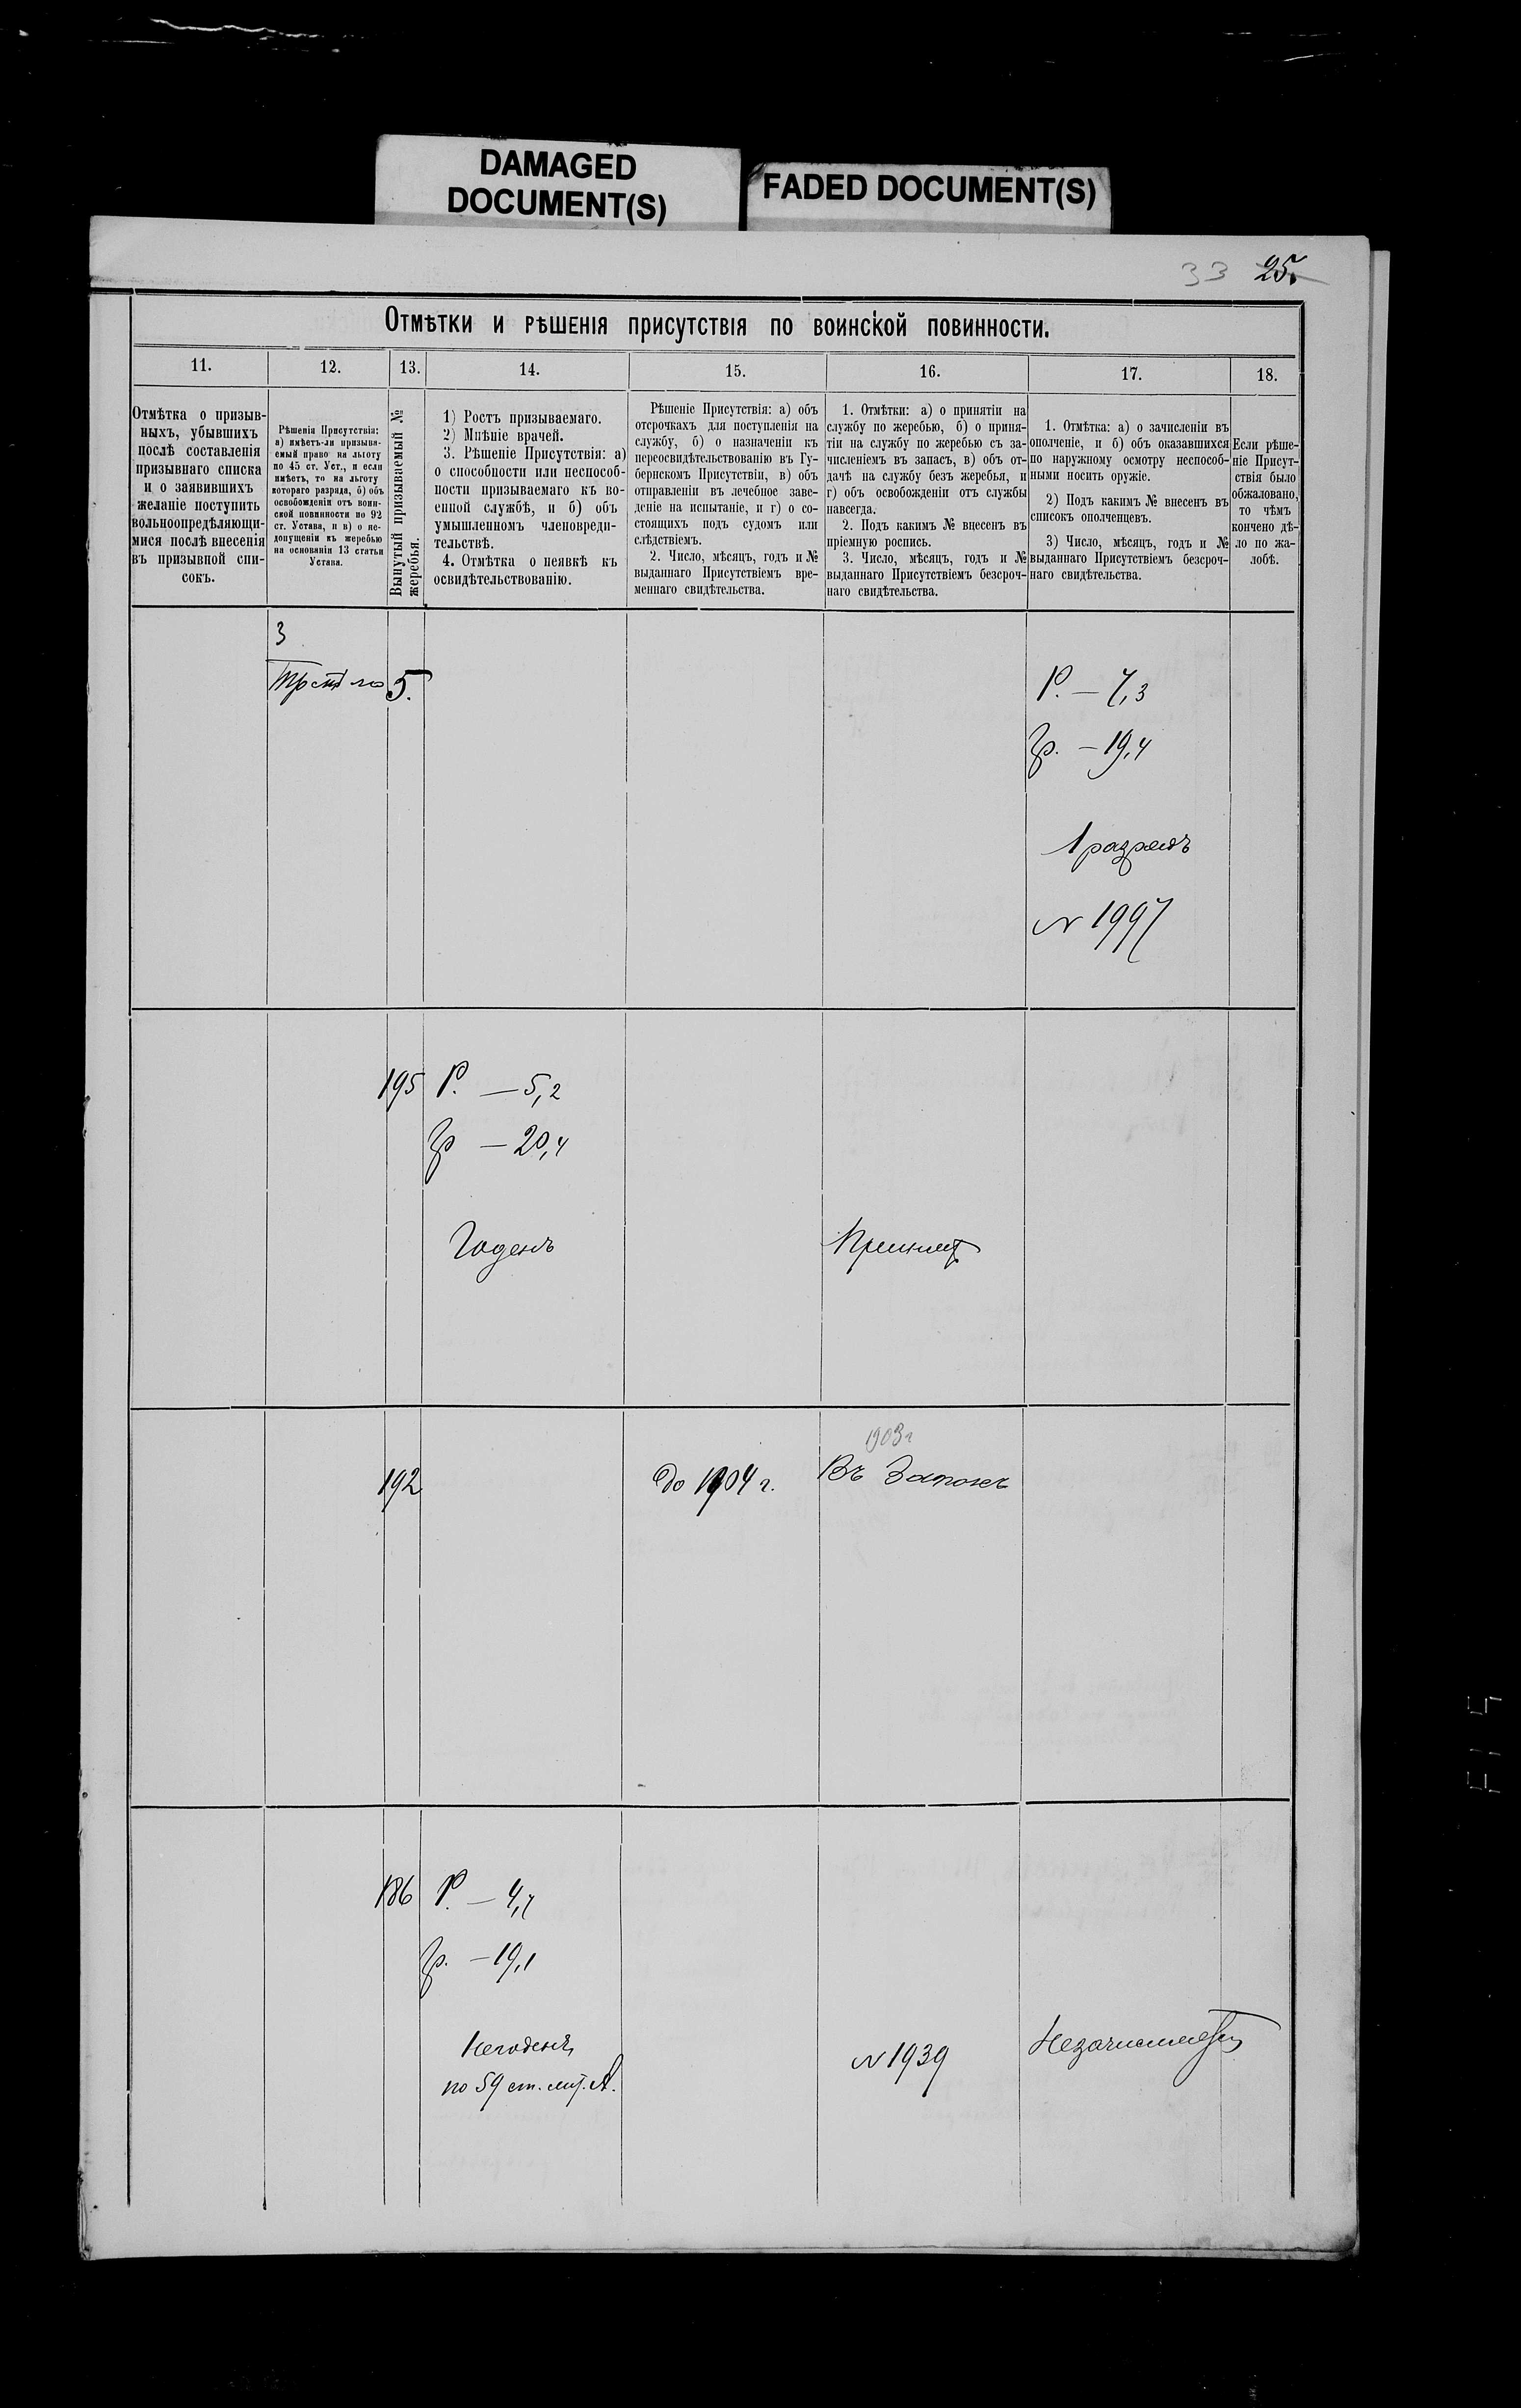 DAMAGED
DOCUMENT(S)
FADED DOCUMENT(S)
33 25.
Отмѣтки и рѣшенія присутствія по воинской повинности.
11.
12.
13.
14.
15.
16.
17.
18.
Отмѣтка о призыв-
ныхъ, убывшихъ
послѣ составленія
призывнаго списка
и о заявившихъ
желаніе поступить
вольноопредѣляющи-
мися послѣ внесенія
въ призывной спи-
сокъ.
Рѣшенія Присутствія:
а) имѣетъ-ли призыва-
емый право на льготу
по 45 ст. Уст., и если
имѣетъ, то на льготу
котораго разряда, б) объ
освобожденіи отъ воин-
ской повинности по 92
ст. Устава, и в) о не-
допущеніи къ жеребью
на основаніи 13 статьи
Устава.
Вынутый призываемый №
жеребья.
1) Ростъ призываемаго.
2) Мнѣніе врачей.
3. Рѣшеніе Присутствія: а)
о способности или неспособ-
ности призываемаго къ во-
енной службѣ, и б) объ
умышленномъ членовреди-
тельствѣ.
4. Отмѣтка о неявкѣ къ
освидѣтельствованію.
Рѣшеніе Присутствія: а) объ
отсрочкахъ для поступленія на
службу, б) о назначеніи къ
переосвидѣтельствованію въ Гу-
бернскомъ Присутствіи, в) объ
отправленіи въ лечебное заве-
деніе на испытаніе, и г) о со-
стоящихъ подъ судомъ или
слѣдствіемъ.
2. Число, мѣсяцъ, годъ и №
выданнаго Присутствіемъ вре-
меннаго свидѣтельства.
1. Отмѣтки: а) о принятіи на
службу по жеребью, б) о приня-
тіи на службу по жеребью съ за-
численіемъ въ запасъ, в) объ от-
дачѣ на службу безъ жеребья, и
г) объ освобожденіи отъ службы
навсегда.
2. Подъ какимъ № внесенъ въ
пріемную роспись.
3. Число, мѣсяцъ, годъ и №
выданнаго Присутствіемъ безсроч-
наго свидѣтельства.
1. Отмѣтка: а) о зачисленіи въ
ополченіе, и б) объ оказавшихся
по наружному осмотру неспособ-
ными носить оружіе.
2) Подъ какимъ № внесенъ въ
списокъ ополченцевъ.
3) Число, мѣсяцъ, годъ и №
выданнаго Присутствіемъ безсроч-
наго свидѣтельства.
Если рѣше-
ніе Присут-
ствія было
обжаловано,
то чѣмъ
кончено дѣ-
ло по жа-
лобѣ.
3
5.
Р. — 7,3
Гр. — 19,4
1 разрядъ
N 1997
195 Р. — 5,2
Гр — 20,4
Годенъ
Принятъ
192
до 1904 г.
1903 г
Въ Запасъ
186 Р. — 4,7
Гр. — 19,1
Негоденъ
по 59 ст. лит. А.
N 1939
Незачисляется